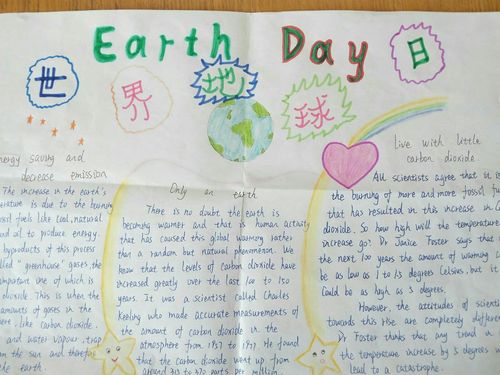 Earth Day
世界地球日
energy saving and
decrease emission
The increase in the earth's
erature is due to the burnin
ossil fuels like coal, natural
and oil to produce energy.
byproducts of this process
lled "greenhouse" gases, the
mportant one of which is
dioxide. This is when the
amounts of gases in the
ere, like carbon dioxide.
and water vapour, trap
m the sun and therefore
the earth.
Only an earth
There is no doubt the earth is
becoming warmer and that is human activity
that has caused this global warming rather
than a random but natural phenmenon. We
know that the levels of carbon dioxide have
increased greatly over the last 100 to 150
years. It was a scientist called Charles
Keeling who made accurate measurements of
the amount of carbon dioxide in the
atmosphere from 1957 to 1997. He found
that the carbon dioxide went up from
around 315 to 370 parts per million.
Live with little
carbon dioxide.
All scientists agree that it is
the burning of more and more fossil f
that has resulted in this increase in C
dioxide. So how high will the temperature
increase go? Dr Janice Foster says that
the next 100 years the amount of warming
be as low as 1 to 1.5 degrees Celsius, but it
Could be as high as 5 degrees.
However, the attitudes of scientis
towards this rise are completely differe
Dr Foster thinks that any trend
the temperature increase by 5 degrees w
lead to a catastrophe.